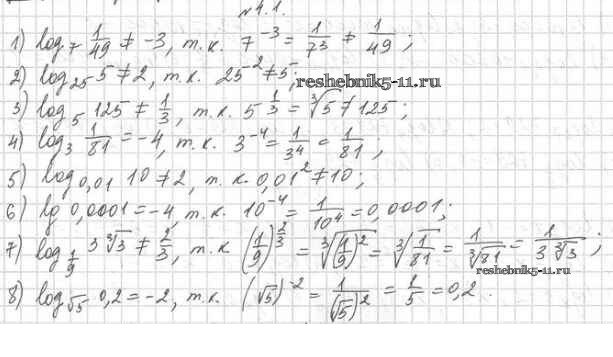 № 4.1.
1) log₇ 1/49 ≠ -3, т.к. 7⁻³ = 1/7³ ≠ 1/49;
2) log₂₅ 5 ≠ 2, т.к. 25⁻² ≠ 5;
reshebnik5-11.ru
3) log₅ 125 ≠ 1/3, т.к. 5^(1/3) = ∛5 ≠ 125;
4) log₃ 1/81 = -4, т.к. 3⁻⁴ = 1/3⁴ = 1/81;
5) log₀,₀₁ 10 ≠ 2, т.к. 0,01² ≠ 10;
6) lg 0,0001 = -4, т.к. 10⁻⁴ = 1/10⁴ = 0,0001;
7) log_(1/9) 3∛3 ≠ 2/3, т.к (1/9)^(2/3) = ∛((1/9)²) = ∛(1/81) = 1/∛81 = 1/(3∛3);
reshebnik5-11.ru
8) log_√5 0,2 = -2, т.к. (√5)⁻² = 1/(√5)² = 1/5 = 0,2.